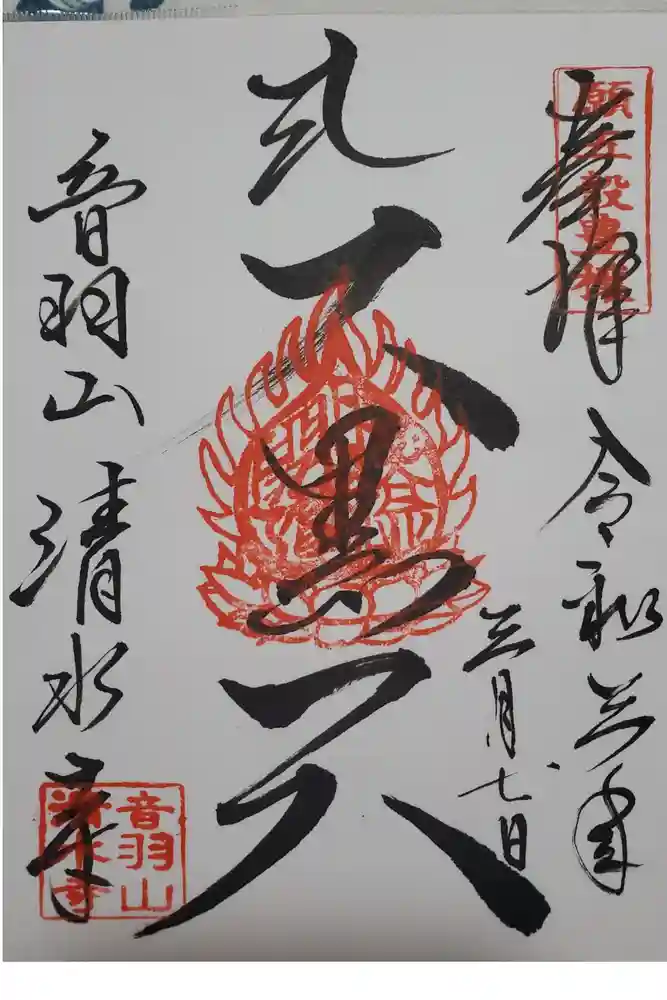 奉拝
願五穀豊穣
令和三年
三月七日
大黒天
音羽山 清水寺
音羽山
清水寺